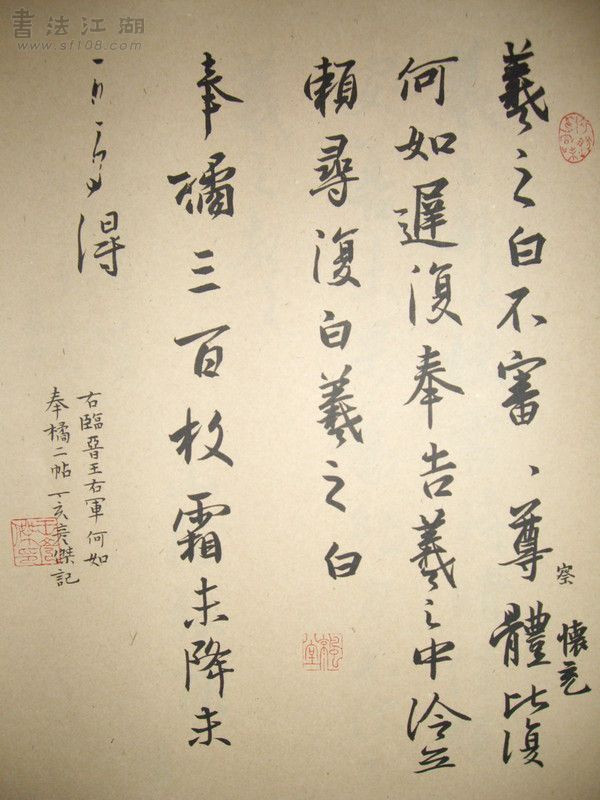 書法江湖
www.sf108.com
羲之白不審、尊體比復
察 懷充
何如遲復奉告羲之中冷無
賴尋復白羲之白
奉橘三百枚霜未降未
可多得
右臨晉王右軍何如
奉橘二帖 丁亥 傑記